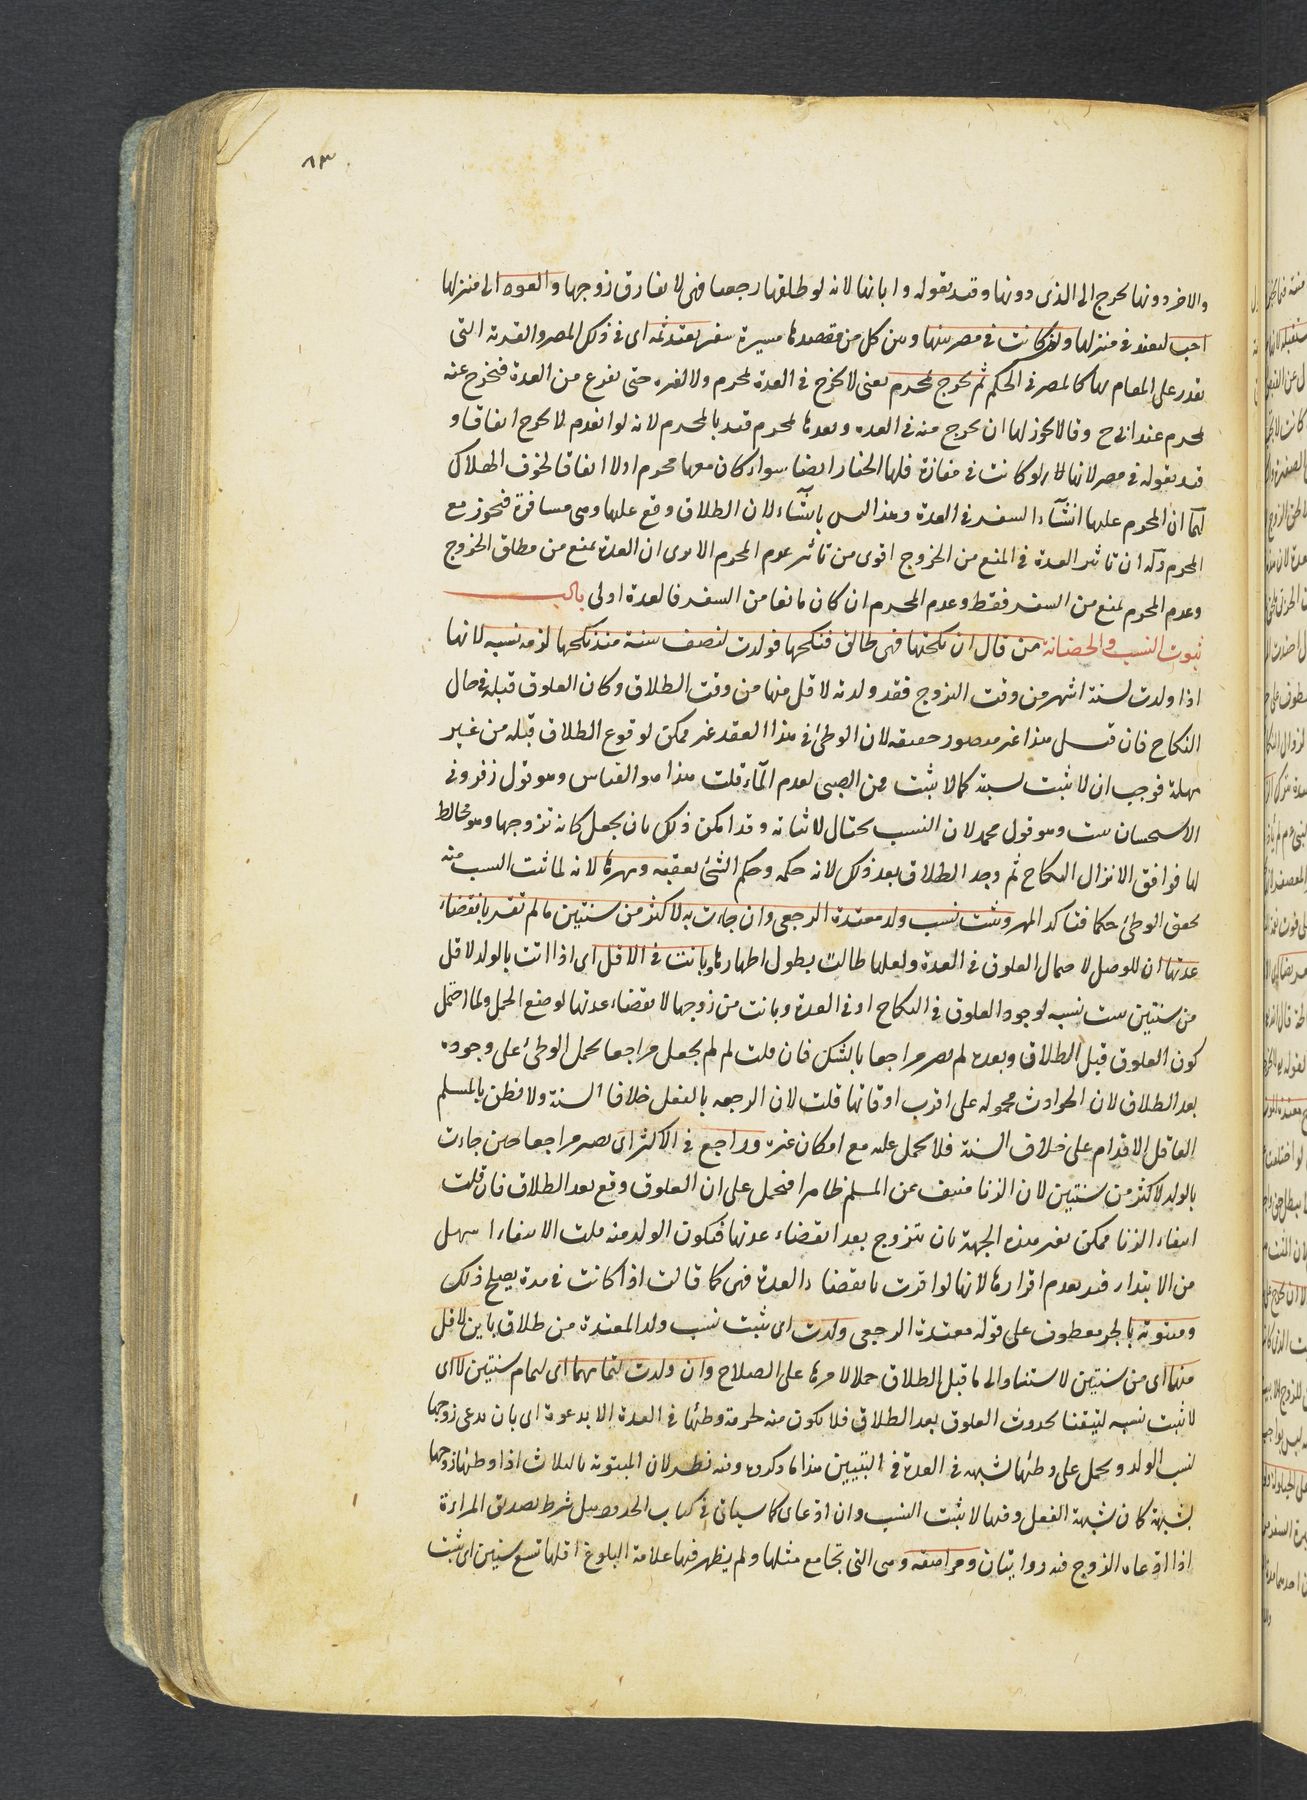 ٨٣
والاخر دونها يخرج الى الذى دونها وقيد بقوله وابانها لانه لو طلقها رجعيا فهى لا تفارق زوجها والعود الى منزلها
احب لتعتد فى منزلها ولو كانت فى مصر بينها وبين كل من مقصدها مسيرة سفر تعتد ثمه اى فى ذلك المصر والقرية التى
يقدر على المقام بها كالمصر فى الحكم ثم يخرج بمحرم يعنى لا يخرج فى العدة بمحرم ولا لغيره حتى تفرغ من العدة فتخرج عنه
بمحرم عند ابى ح وقالا يجوز لها ان يخرج منه فى العده وبعدها بمحرم قيد بالمحرم لانه لو انعدم لا يخرج اتفاقا و
قيد بقوله فى مصر لانها لو كانت فى مفازة فلها الخيار ايضا سواء كان معها محرم او لا اتفاقا لخوف الهلاك
لهما ان المحرم عليها انشاء السفر فى العدة وهذا ليس بانشاء لان الطلاق وقع عليها وهى مسافرة فتجوز مع
المحرم وله ان تاثير العدة فى المنع من الخروج اقوى من تاثير عدم المحرم الا يرى ان العدة تمنع من مطلق الخروج
وعدم المحرم يمنع من السفر فقط وعدم المحرم ان كان مانعا من السفر فالعدة اولى باب
ثبوت النسب والحضانة من قال ان نكحتها فهى طالق فنكحها فولدت لنصف سنة منذ نكحها لزمه نسبه لانها
اذا ولدت لستة اشهر من وقت التزوج فقد ولدته لاقل منها من وقت الطلاق وكان العلوق قبله فى حال
النكاح فان قيل هذا غير متصور حقيقه لان الوطئ فى هذا العقد غير ممكن لوقوع الطلاق قبله من غير
مهلة فوجب ان لا يثبت نسبه كما لا يثبت من الصبى لعدم الماء قلت هذا هو القياس وهو قول زفر وفى
الاستحسان يثبت وهو قول محمد لان النسب يحتال لاثباته وقد امكن ذلك بان يجعل كانه تزوجها وهو مخالط
لها فوافق الانزال النكاح ثم وجد الطلاق بعد ذلك لانه حكمه وحكم الشئ يعقبه ومهرها لانه لما ثبت النسب منه
تحقق الوطئ حكما فتاكد المهر ويثبت نسب ولد معتدة الرجعى وان جاءت به لاكثر من سنتين ما لم تقر بانقضاء
عدتها ان للوصل لاحتمال العلوق فى العدة ولعلها طالت بطول اطهارها وبانت فى الاقل اى اذا اتت بالولد لاقل
من سنتين يثبت نسبه لوجود العلوق فى النكاح او فى العدة وبانت من زوجها لانقضاء عدتها لوضع الحمل ولما احتمل
كون العلوق قبل الطلاق وبعده لم يصر مراجعا بالشك فان قلت لم لم يجعل مراجعا بحمل الوطئ على وجوده
بعد الطلاق لان الحوادث محموله على اقرب اوقاتها قلت لان الرجعه بالفعل خلاف السنة ولا نظن بالمسلم
العاقل الاقدام على خلاف السنة فلا يحمل عليه مع امكان غيره وراجع فى الاكثر اى يصير مراجعا حين جاءت
بالولد لاكثر من سنتين لان الزنا منتف عن المسلم ظاهرا فتحمل على ان العلوق وقع بعد الطلاق فان قلت
انتفاء الزنا ممكن بغير هذه الجهة بان تتزوج بعد انقضاء عدتها فيكون الولد منه قلت الابقاء اسهل
من الابتداء قيد بعدم اقرارها لانها لو اقرت بانقضاء العدة فهى كما قالت اذا كانت فى مدة يصلح ذلك
ومبتوتة بالجر معطوف على قوله معتدة الرجعى ولدت اى يثبت نسب ولد المعتدة من طلاق باين لاقل
منها اى من سنتين لاستناده الى ما قبل الطلاق حملا لامرها على الصلاح وان ولدت لتمامهما اى لتمام سنتين لا اى
لا يثبت نسبه لتيقننا بحدوث العلوق بعد الطلاق فلا يكون منه لحرمة وطئها فى العدة الا بدعوة اى بان يدعى زوجها
نسب الولد ويحمل على وطئها لشبهه فى العدة فى التبيين هذا ما ذكروه وفيه نظر لان المبتوتة بالثلاث اذا وطئها زوجها
بشبهة كان شبهة الفعل وفيها لا يثبت النسب وان ادعاى كما سياتى فى كتاب الحدود وهل شرط تصديق المراءة
اذا ادعاه الزوج فيه روايتان ومراهقة وهى التى تجامع مثلها ولم يظهر فيها علامة البلوغ اقلها تسع سنين اى يثبت